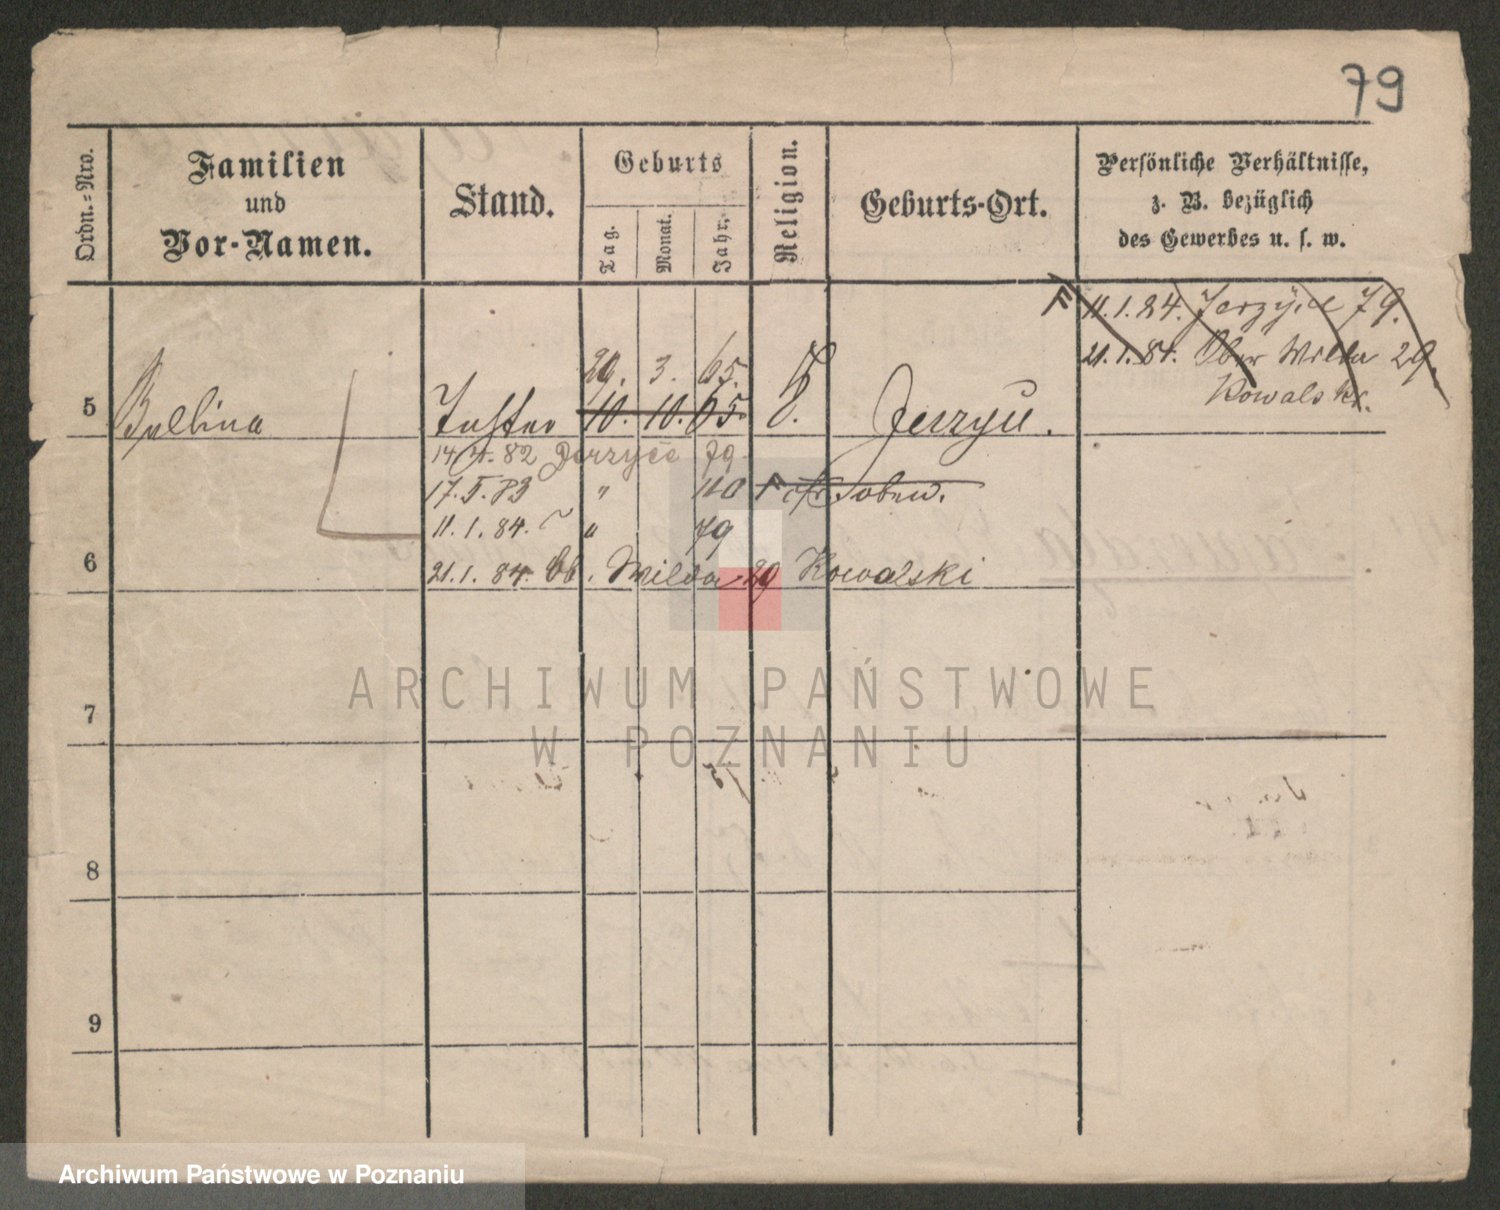 79
Ordn.=Nro.
Familien
und
Vor-Namen.
Stand.
Geburts
Tag.
Monat.
Jahr.
Religion.
Geburts-Ort.
Persönliche Verhältnisse,
z. B. bezüglich
des Gewerbes u. s. w.
11.1.84. Jerzyce 79.
21.1.84. Ober Wilda 29.
Kowalski.
29. 3. 65.
5 Balbina Tochter 10. 10. 65. Jerzyce.
14. 82 Jerzyce 79
17. 83 " 110
11.1.84. " 79
6
21.1.84. Ob. Wilda 29 Kowalski
7
8
9
ARCHIWUM PAŃSTWOWE
W POZNANIU
Archiwum Państwowe w Poznaniu